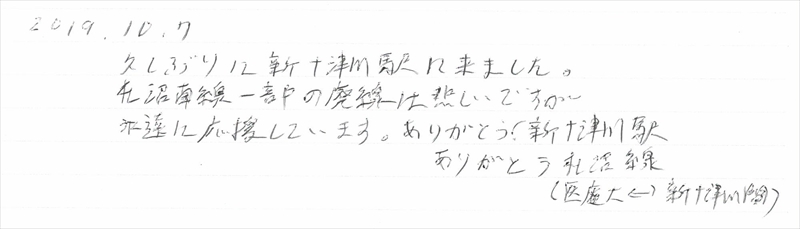 2019.10.7
久しぶりに新十津川駅に来ました。
札沼線一部の廃線は悲しいですが
永遠に応援しています。ありがとう!新十津川駅
ありがとう札沼線
(医療大↔新十津川間)